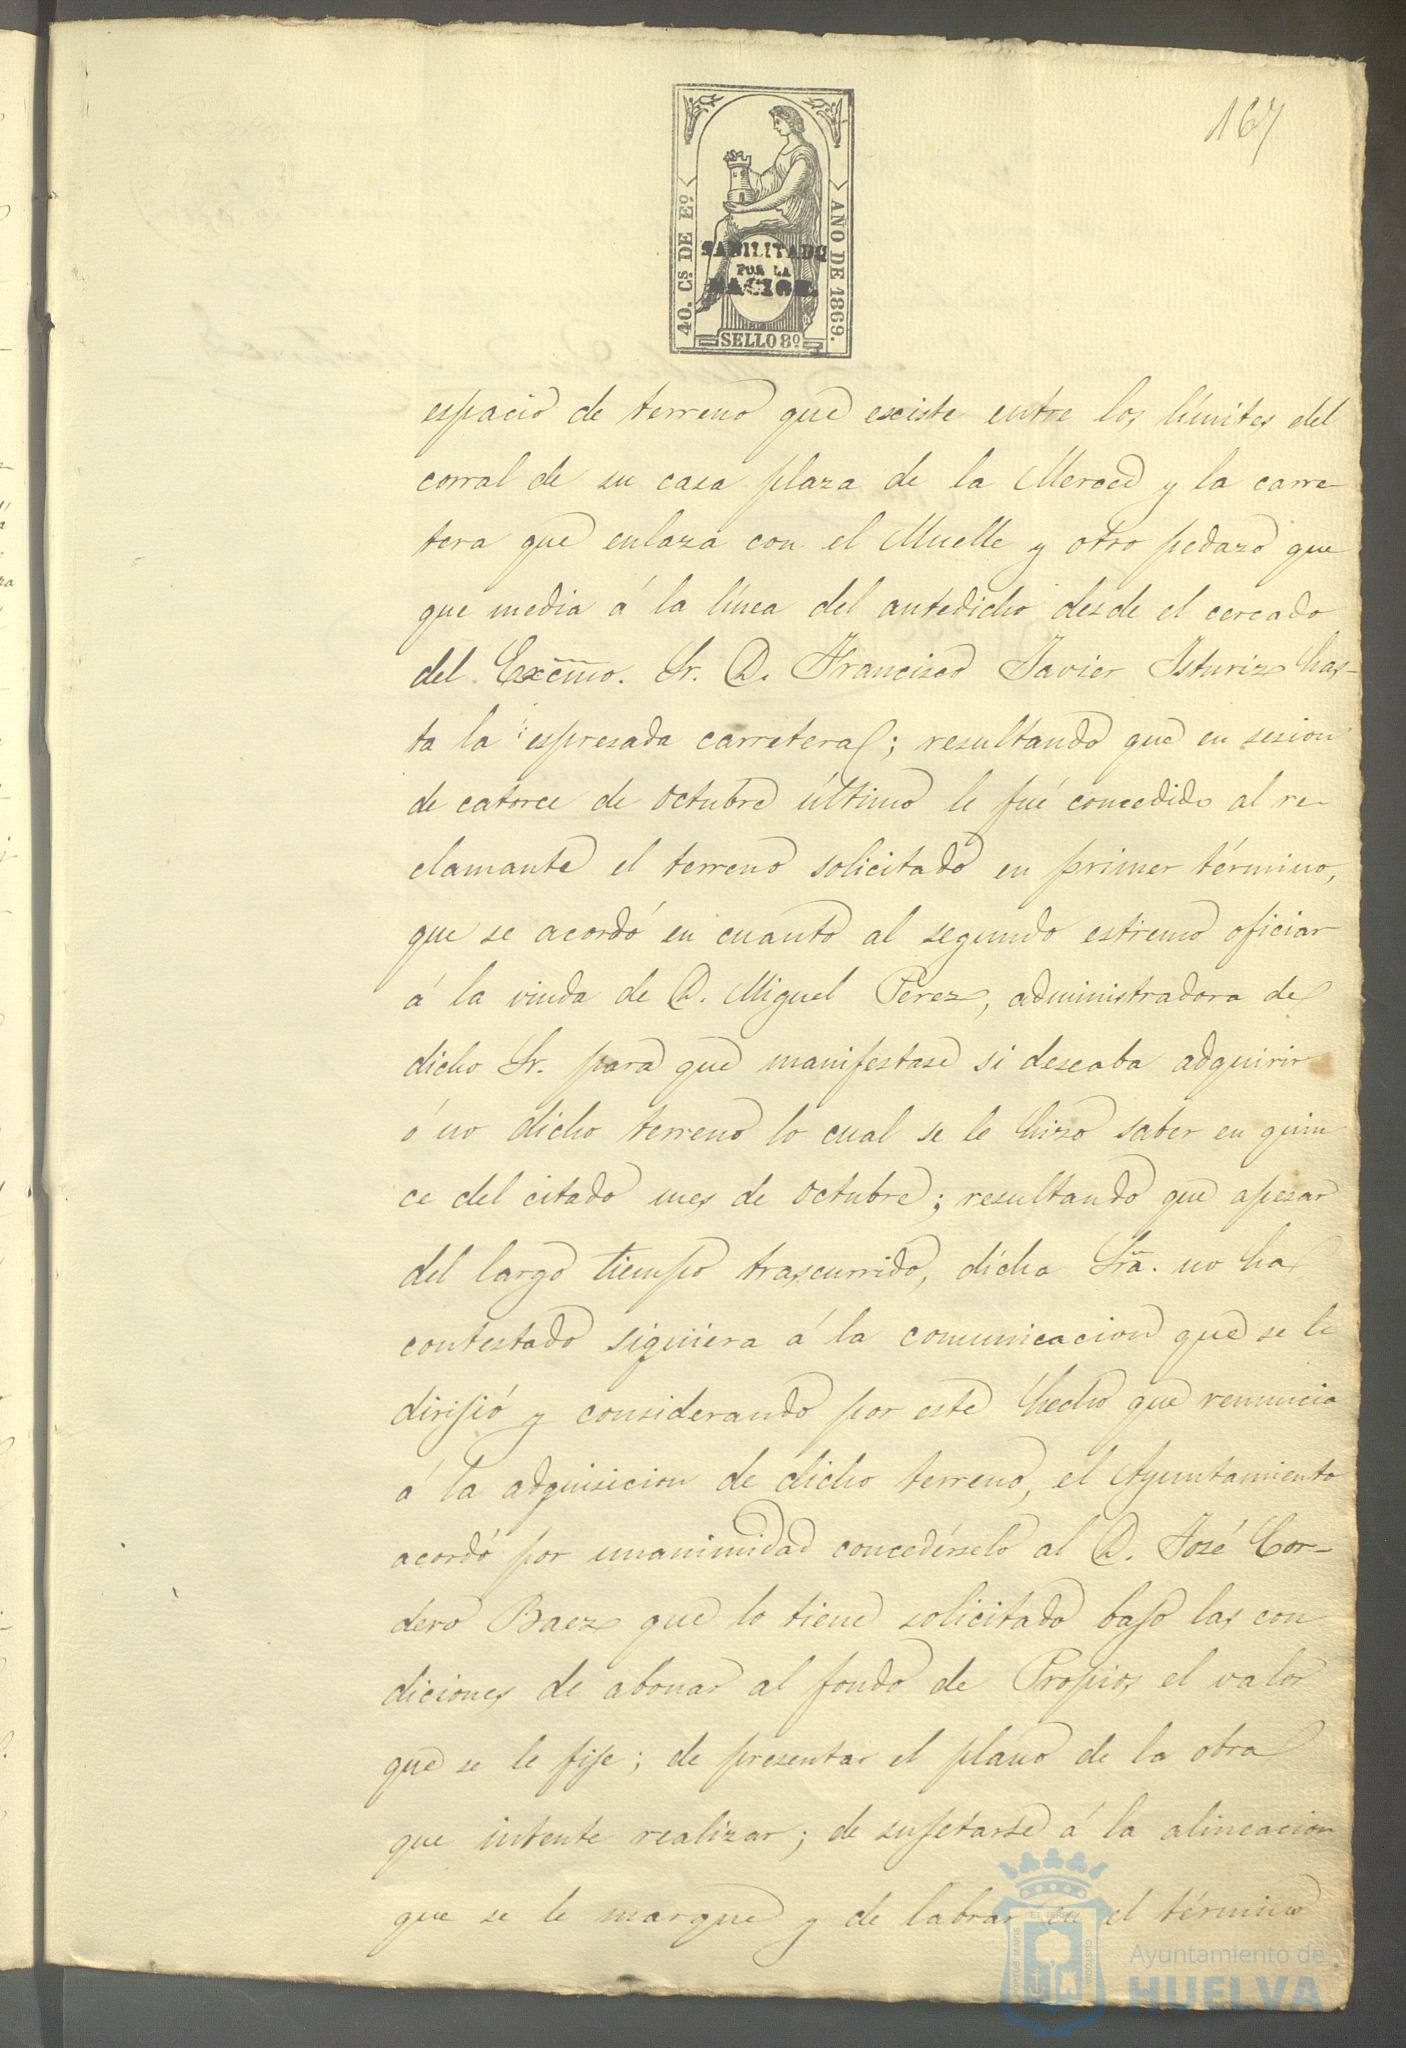 167
40. Cs DE Eº
AÑO DE 1869.
HABILITADO
POR LA
NACION.
SELLO 8º
espacio de terreno que existe entre los límites del
corral de su casa plaza de la Merced y la carre-
tera que enlaza con el Muelle y otro pedazo que
que media á la línea del antedicho desde el cercado
del Excmo. Sr. D. Francisco Javier Isturiz has-
ta la espresada carretera; resultando que en sesion
de catorce de Octubre último le fué concedido al re-
clamante el terreno solicitado en primer término,
que se acordó en cuanto al segundo estremo oficiar
á la viuda de D. Miguel Perez, administradora de
dicho Sr. para que manifestase si deseaba adquirir
ó no dicho terreno lo cual se le hizo saber en quin
ce del citado mes de Octubre; resultando que apesar
del largo tiempo trascurrido, dicha Sra. no ha
contestado siquiera á la comunicacion que se le
dirijió y considerando por este hecho que renuncia
á la adquisicion de dicho terreno, el Ayuntamiento
acordó por unanimidad concedérselo al D. José Cor-
dero Baez que lo tiene solicitado bajo las con
diciones de abonar al fondo de Propios el valor
que se le fije; de presentar el plano de la obra
que intente realizar; de sujetarse á la alineacion
que se le marque y de labrar en el término
Ayuntamiento de
HUELVA